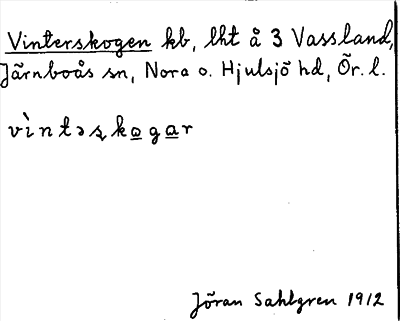 Vinterskogen kb, lht å 3 Vassland,
Järnboås sn, Nora o. Hjulsjö hd, Ör. l.
vìntəʂkagar
Jöran Sahlgren 1912